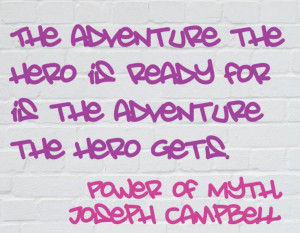 THE ADVENTURE THE
HERO IS READY FOR
IS THE ADVENTURE
THE HERO GETS.
POWER OF MYTH,
JOSEPH CAMPBELL